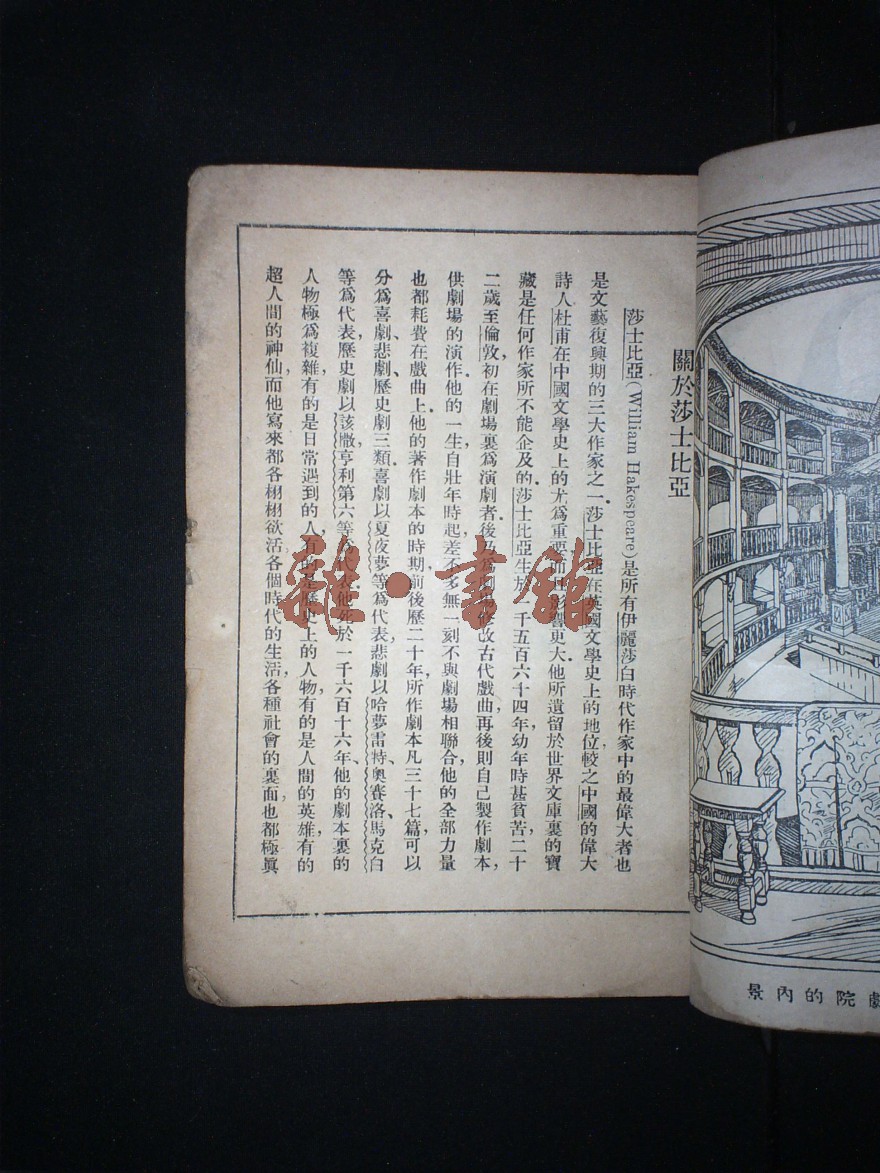 關於莎士比亞
莎士比亞(William Hakespeare)是所有伊麗莎白時代作家中的最偉大者也
是文藝復興期的三大作家之一莎士比亞在英國文學史上的地位,較之中國的偉大
詩人杜甫在中國文學史上的尤為重要而且影響更大.他所遺留於世界文庫裏的寶
藏是任何作家所不能企及的.莎士比亞生於一千五百六十四年,幼年時甚貧苦,二十
二歲至倫敦,初在劇場裏為演劇者,後乃為劇場修改古代戲曲,再後則自己製作劇本,
供劇場的演作.他的一生自壯年時起,差不多無一刻不與劇場相聯合,他的全部力量
也都耗費在戲曲上.他的著作劇本的時期,前後歷二十年,所作劇本凡三十七篇,可以
分為喜劇、悲劇、歷史劇三類.喜劇以夏夜夢等為代表,悲劇以哈夢雷特、奧賽洛、馬克白
等為代表,歷史劇以該撒、亨利第六等為代表.他死於一千六百十六年.他的劇本裏的
人物極為複雜,有的是日常遇到的人,有的是歷史上的人物,有的是人間的英雄,有的
超人間的神仙,而他寫來都各栩栩欲活,各個時代的生活,各種社會的裏面,也都極眞
劇院的內景
雜·書館